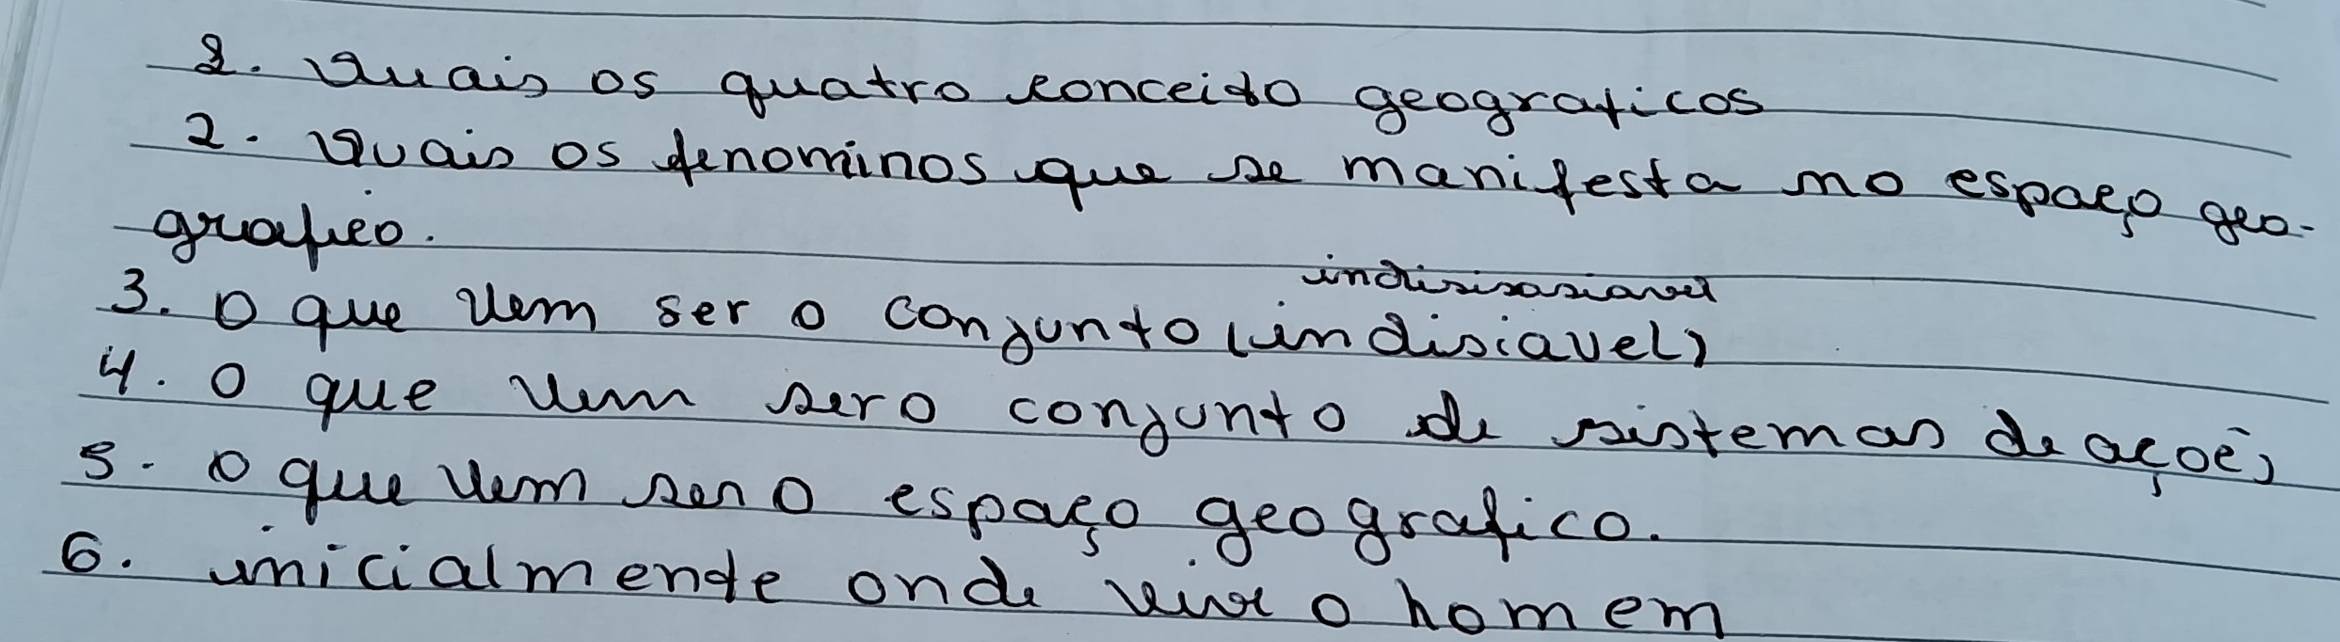 1. Quais os quatro conceito geograficos
2. Quais os fenominos que se manifesta no espaço geo-
grafico.
3. O que vem ser o conjunto (indisiavel)
4. O que vem sero conjunto de sistemas de açoẽs
5. O que vem ser o espaço geografico.
6. inicialmente onde vive o homem